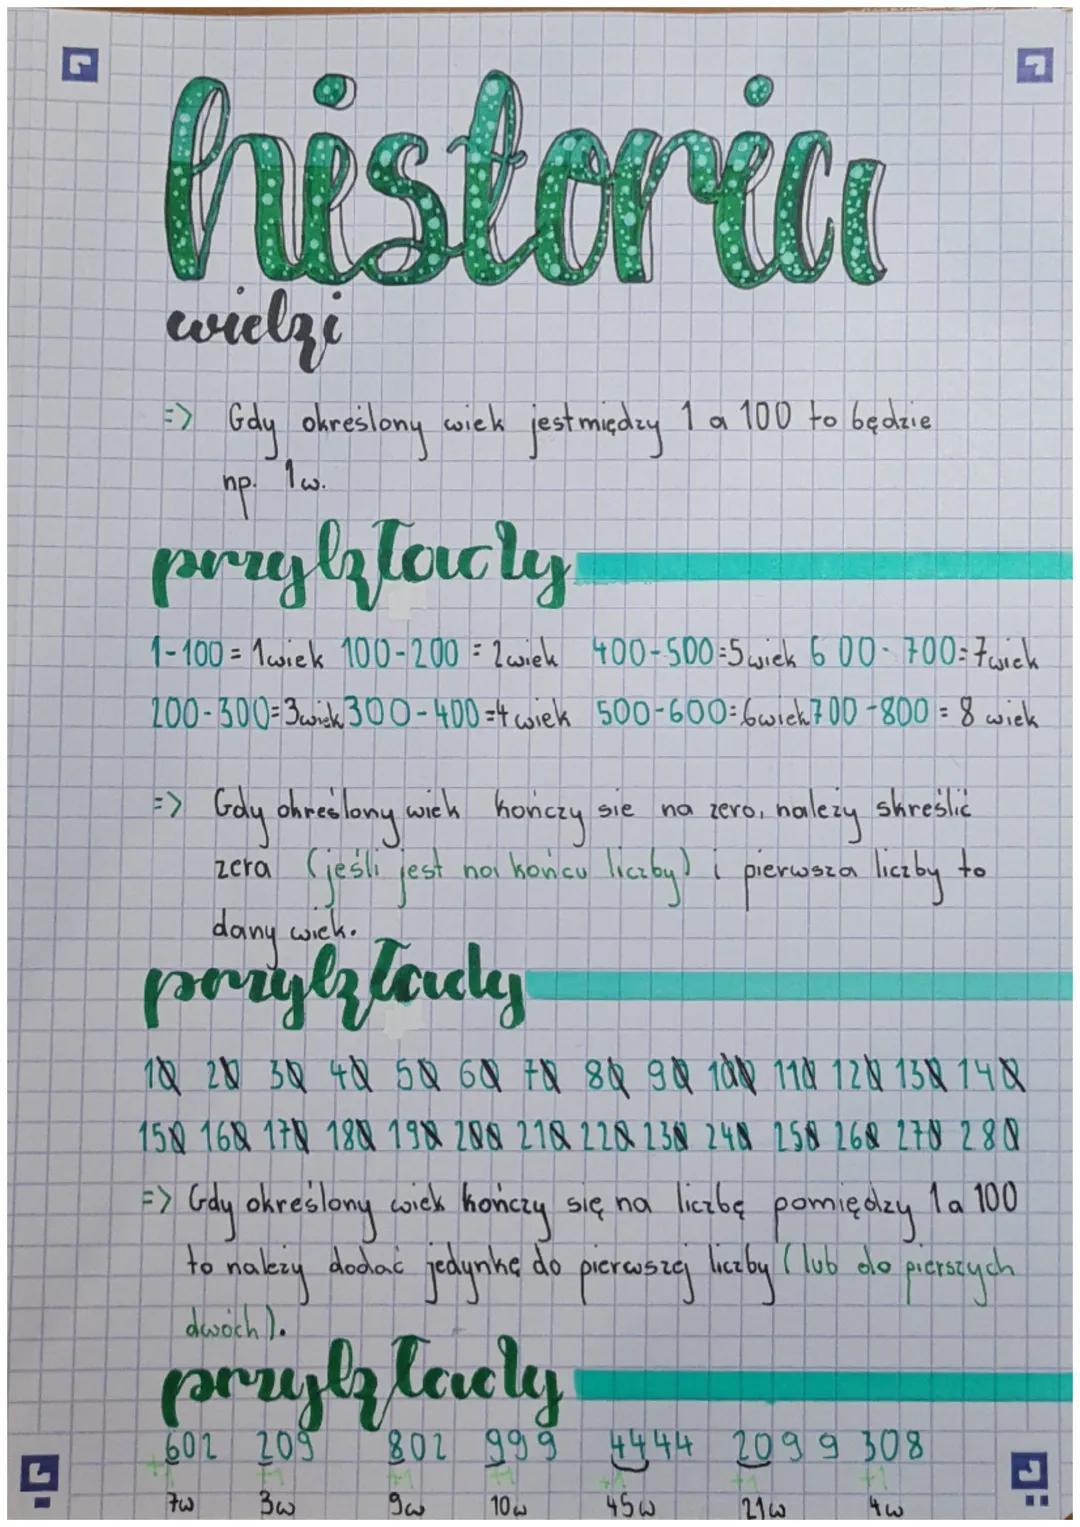 historia
wieki
=> Gdy określony wiek jest między 1 a 100 to będzie
np. 1w.
przykłady
1-100 = 1wiek 100-200 = 2wiek 400-500=5wiek 600-700=7wiek
200-300=3wiek 300-400=4wiek 500-600=6wiek 700-800 = 8 wiek
=> Gdy określony wiek kończy sie na zero, należy skreślić
zera (jeśli jest na końcu liczby) i pierwsza liczby to
dany wiek.
przykłady
10 20 30 40 50 60 70 80 90 100 110 120 130 140
150 160 170 180 190 200 210 220 230 240 250 260 270 280
=> Gdy określony wiek kończy się na liczbę pomiędzy 1 a 100
to należy dodać jedynkę do pierwszej liczby (lub do pierszych
dwóch).
przykłady
602 209 802 999 4444 2099 308
+1 +1 +1 +1 +1 +1 +1
7w 3w 9w 10w 45w 21w 4w